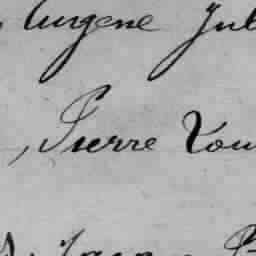 Eugene Jul
, Pierre Lou